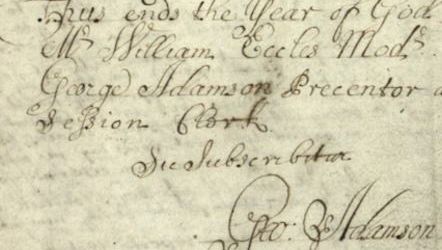 Thus ends the Year of God
Mr William Eccles Modr.
George Adamson Precentor
Session Clerk
Sic Subscribitur
Geo: Adamson